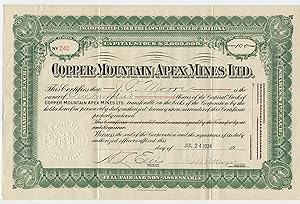 INCORPORATED UNDER THE LAWS OF THE STATE OF ARIZONA
CAPITAL STOCK $2,000,000
NV 240
100
COPPER MOUNTAIN APEX MINES LTD.
This Certifies that J. A. Moore is the
owner of Shares of the Capital Stock of
COPPER MOUNTAIN APEX MINES LTD. transferable on the books of the Corporation by the
holder hereof in person or by duly authorized Attorney upon surrender of this Certificate
properly endorsed.
Witness the seal of the Corporation and the signatures of its duly
authorized officers affixed this
day of JUL 24 1934 19
FULL PAID AND NON-ASSESSABLE